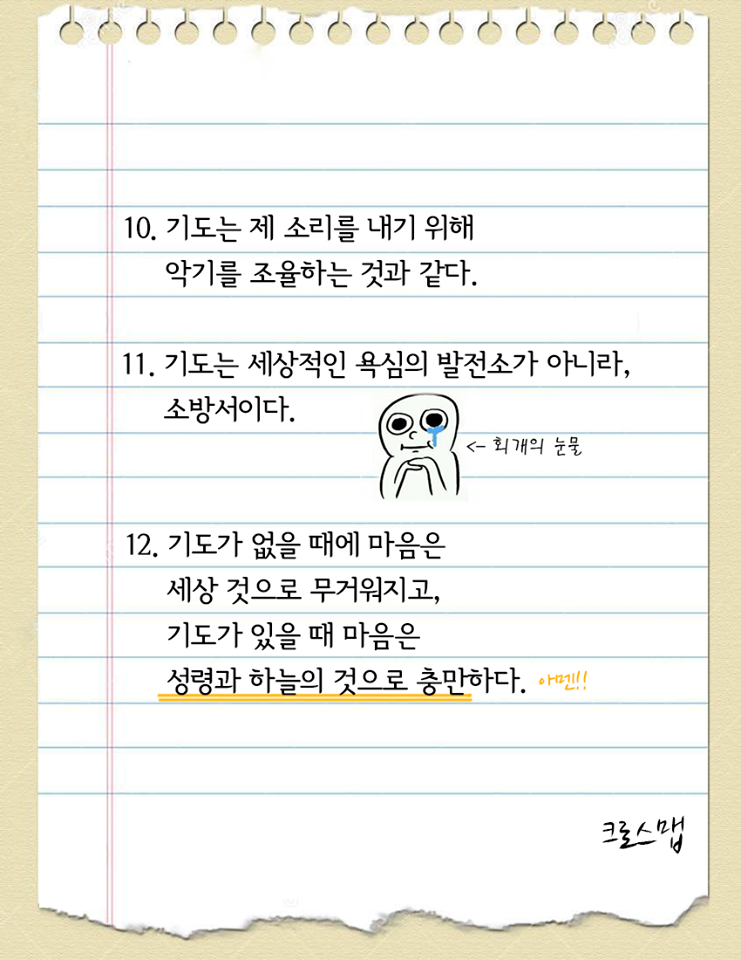 10. 기도는 제 소리를 내기 위해
악기를 조율하는 것과 같다.
11. 기도는 세상적인 욕심의 발전소가 아니라,
소방서이다.
<- 회개의 눈물
12. 기도가 없을 때에 마음은
세상 것으로 무거워지고,
기도가 있을 때 마음은
성령과 하늘의 것으로 충만하다. 아멘!!
크로스맵